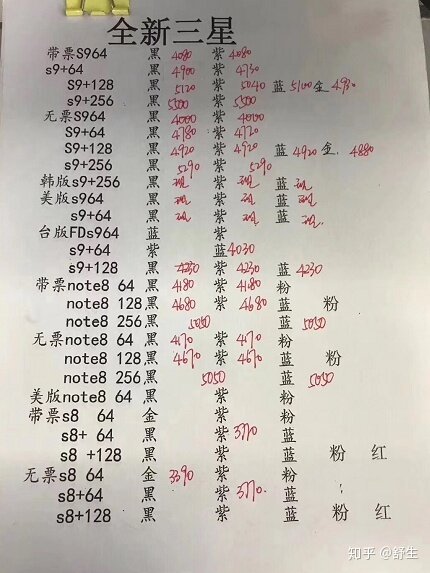 全新三星
带票S964 黑 4080 紫 4080
s9+64 黑 4900 紫 4730
S9+128 黑 5120 紫 5040 蓝 5100 金 4930
s9+256 黑 5500 紫 5500
无票S964 黑 4000 紫 4000
S9+64 黑 4780 紫 4720
S9+128 黑 4920 紫 4920 蓝 4920 金. 4880
s9+256 黑 5290 紫 5290
韩版s9+256 黑 现 紫 现 蓝 现
美版s964 黑 现 紫 现 蓝 现
s9+64 黑 现 紫 现 蓝 现.
台版FDs964 蓝 紫
s9+64 紫 蓝4030
s9+128 黑 4230 紫 4230 蓝 4230
带票note8 64 黑 4180 紫 4180 粉
note8 128 黑 4680 紫 4680 蓝 粉
note8 256 黑 5050 蓝 5050
无票note8 64 黑 4170 紫 4170 粉
note8 128 黑 4670 紫 4670 蓝 粉
note8 256 黑 5050 蓝 5050
美版note8 64 黑 紫 粉
带票s8 64 金 紫 粉
s8+ 64 黑 紫 3770 蓝
s8 +128 黑 紫 蓝 粉 红
无票s8 64 金 3390 紫 粉
s8+64 黑 紫 3770. 蓝
s8+128 黑 紫 蓝 粉 红
知乎 @舒生